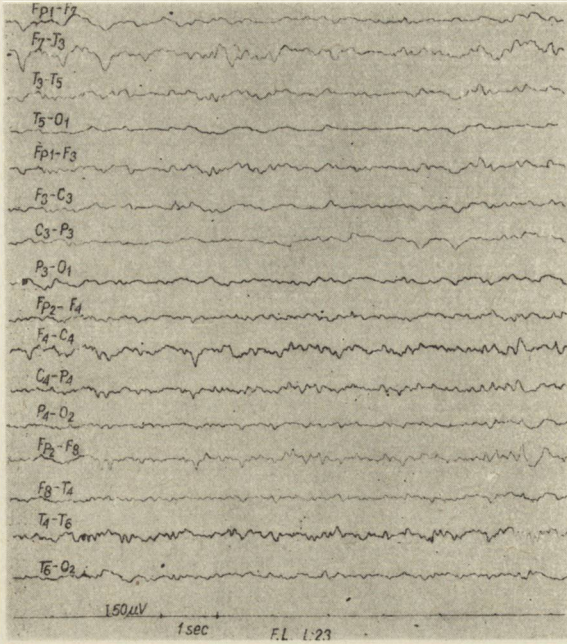 Fp1-F7
F7-T3
T3-T5
T5-O1
Fp1-F3
F3-C3
C3-P3
P3-O1
Fp2-F4
F4-C4
C4-P4
P4-O2
Fp2-F8
F8-T4
T4-T6
T6-O2
50μV
1sec F.L. 1:23